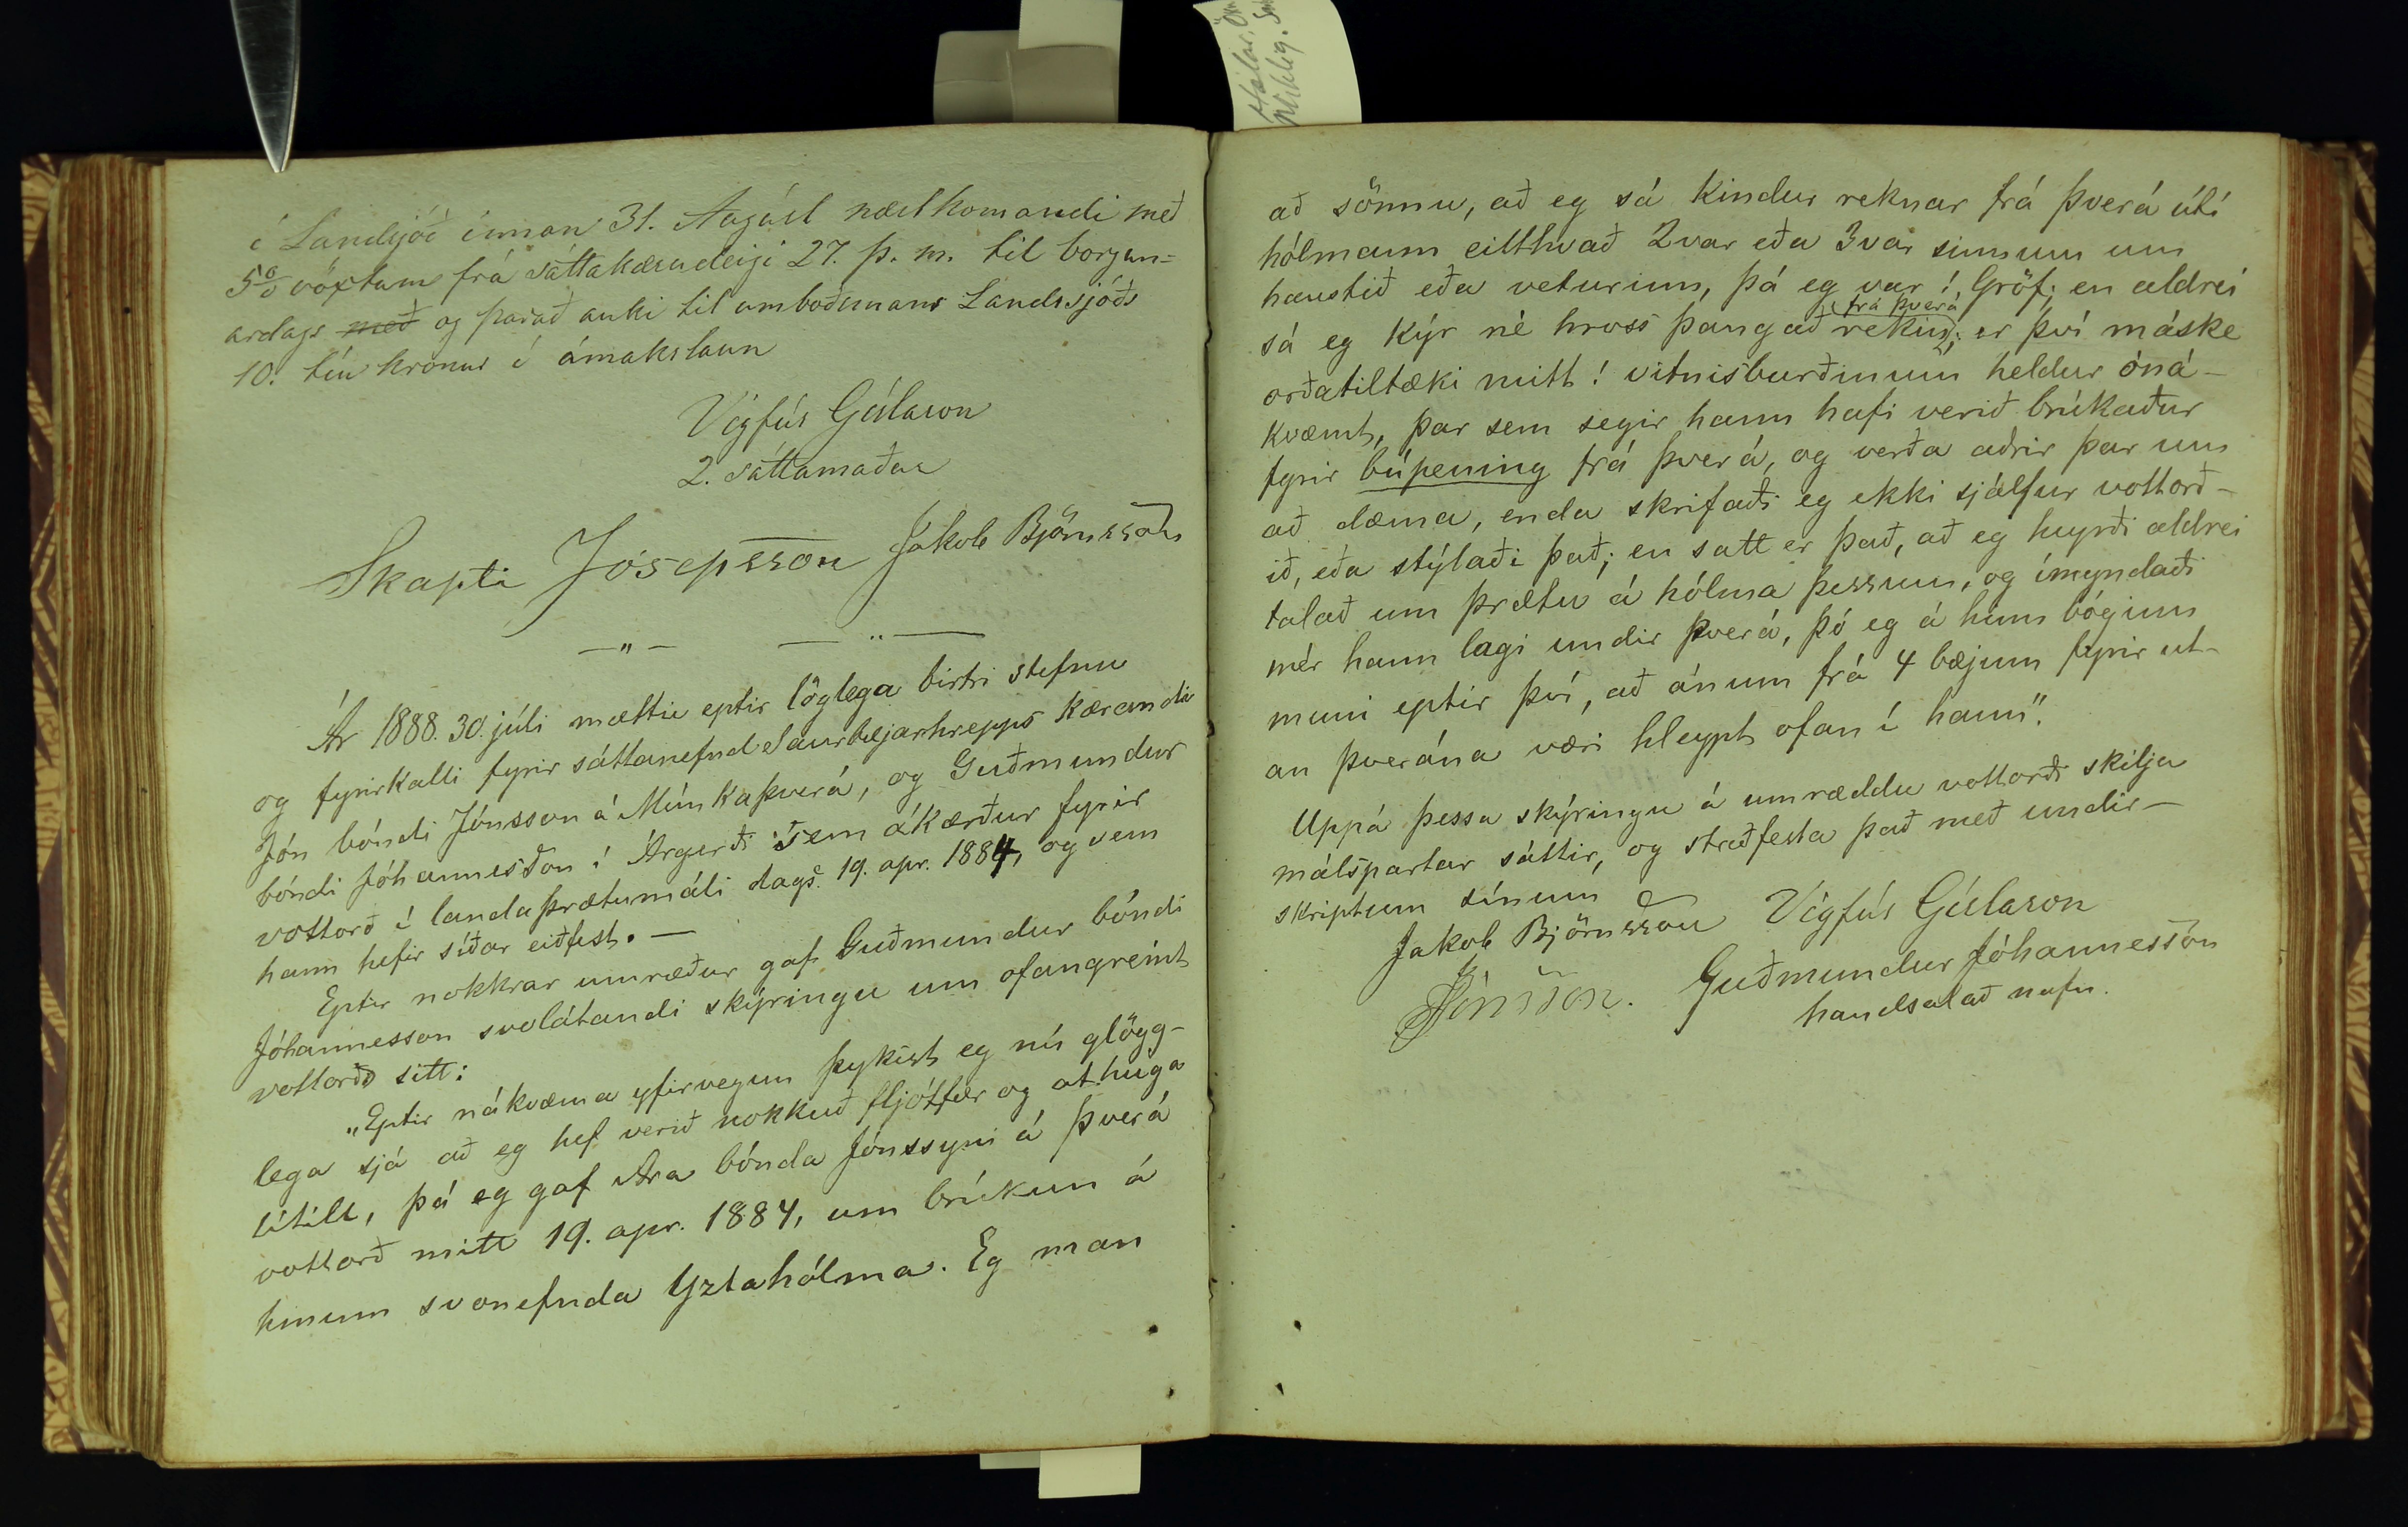 í Landsjóð innan 31. Agúst næstkomandi með
5% vöxtum frá sáttakærudeigi 27. þ. m. til borgun-
ardags með og þarað auki til umboðsmans Landssjóðs
10. tíu krónur í ómakslaun
Vigfús Gíslason
2. sáttamaður
Skapti Jósepsson Jakob Björnsson
— „ — — „ —
Ár 1888. 30. júli mættu eptir löglega birtri stefnu
og fyrirkalli fyrir sáttanefnd Saurbæjarhrepps kærandi
Jón bóndi Jónsson á Múnkaþverá, og Guðmundur
bóndi Jóhannesson í Árgerði sem ákærður fyrir
vottorð í landaþrætumáli dags. 19. apr. 1884, og sem
hann hefir síðar eiðfest. —
Eptir nokkrar umræður gaf Guðmundur bóndi
Jóhannesson svolátandi skýringu um ofangreint
vottorð sitt:
„Eptir nákvæma yfirvegun þykist eg nú glögg-
lega sjá að eg hef verið nokkuð fljótfær og athuga
lítill, þá eg gaf Ara bónda Jónssyni á Þverá
vottorð mitt 19. apr. 1884, um brúkun á
hinum svonefnda Yztahólma. Eg man
Hólar, Öxn
Miklig. Sa
að sönnu, að eg sá kindur reknar frá Þverá útí
hólmann eitthvað 2var eða 3var sinnum um
haustið eða veturinn, þá eg var í Gröf; en aldrei
frá Þverá
sá eg kýr nè hross þangað rekin; er því máske
orðatiltæki mitt í vitnisburðinum heldur óná-
kvæmt, þar sem segir hann hafi verið brúkaður
fyrir búpening frá Þverá, og verða aðrir þar um
að dæma, enda skrifaði eg ekki sjálfur vottorð-
ið, eða stýlaði það; en satt er það, að eg heyrði aldrei
talað um þrætu á hólma þessum, og ímyndaði
mér hann lagi undir Þverá, þó eg á hinn bóginn
muni eptir því, að ánum frá 4 bæjum fyrir ut-
an þverána væri hleypt ofan í hann“.
Uppá þessa skýringu á umræddu vottorði skilja
málspartar sáttir, og staðfesta það með undir-
skriptum sínum
Jakob Björnsson Vigfús Gíslason
JJónsson. Guðmundur Jóhannesson
handsalað nafn.